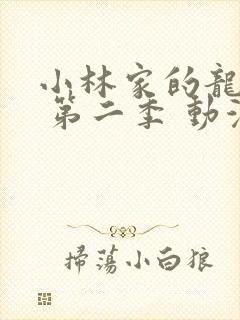 小林家的龍
第二季 動
掃蕩小白狼